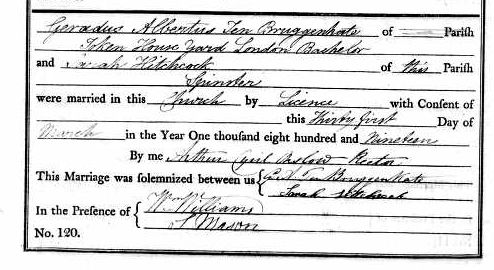 Geradus Albertus Ten Bruggenkate of Parish
Token House Yard London Bachelor
and Sarah Hitchcock of this Parish
Spinster
were married in this Church by Licence with Consent of
this Thirty first Day of
March in the Year One thousand eight hundred and Nineteen
By me Arthur Cyril Onslow Rector
This Marriage was solemnized between us { G. A. Ten Bruggenkate
Sarah Hitchcock
In the Presence of { Wm Williams
S Mason
No. 120.